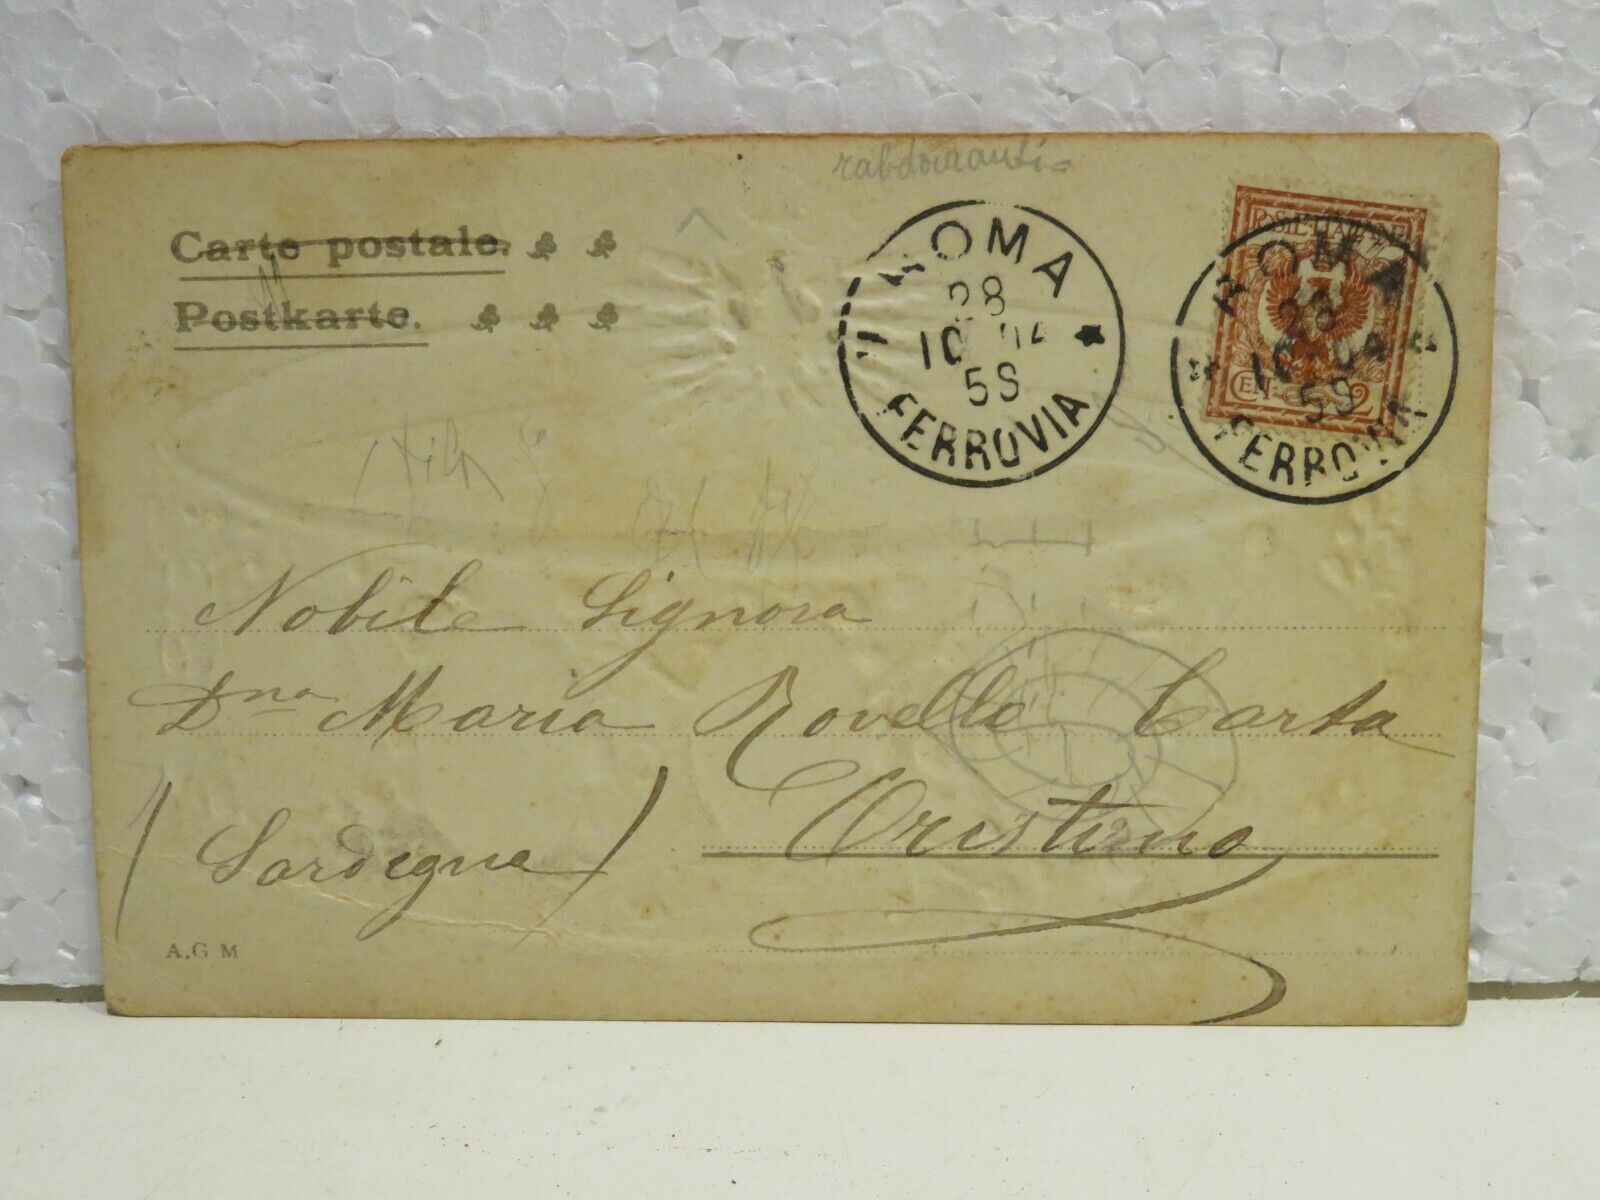 rabdomanti
Carte postale.
Postkarte.
ROMA
28
10 04
5S
FERROVIA
POSTE ITALIANE
CENT. 2
ROMA
28
10 04
5S
FERROVIA
Nobile Signora
Dna Maria Rovello Carta
Oristano
(Sardegna)
A.G M